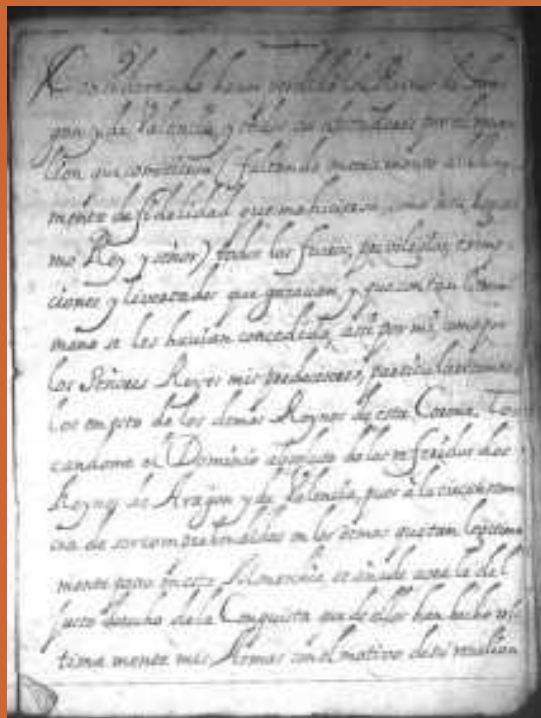 Considerando haver perdido los Reynos de Ara
gon y de Valencia, y todos sus habitadores por el rebe
lion que cometieron (faltando enteramente al Jura
mento de fidelidad que me hicieron, como a su legiti
mo Rey y señor) todos los fueros, privilegios, exemp
ciones y livertades que gozavan, y que con tan libera
mano se les havian concedido, assi por mi, como por
los Señores Reyes mis predecesores, particularizando
los en esto de los demas Reynos de esta Corona, To
candome el Dominio absoluto de los referidos dos
Reynos de Aragon y de Valencia, pues a la circunstan
cia de ser comprehendidos en los demas que tan legitima
mente poseo en esta Monarchia, se añade aora la del
justo derecho de la Conquista que de ellos han hecho ul
tima mente mis Armas con el motivo de su rebelion